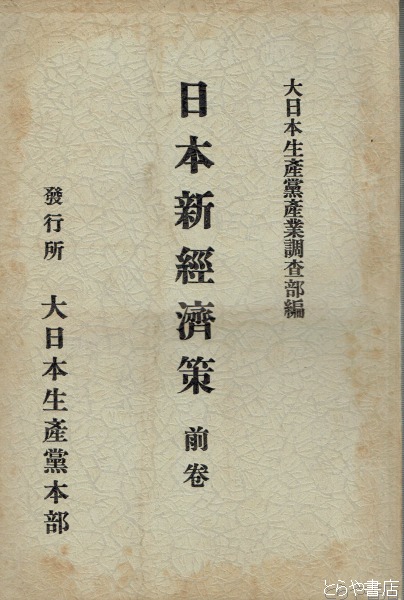 大日本生產黨產業調査部編
日本新經濟策 前卷
發行所 大日本生產黨本部
とらや書店